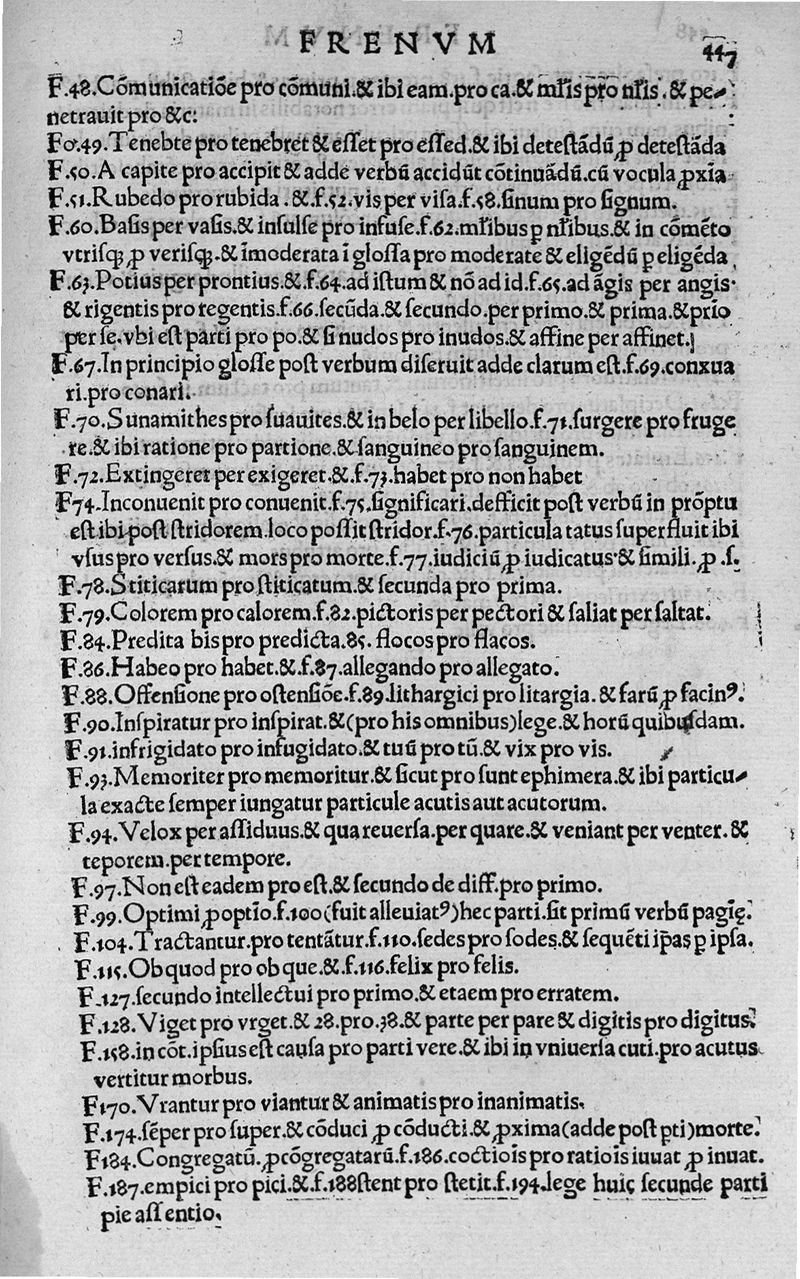 FRENVM
447
F.48.Cõmunicatiõe pro cõmuni.& ibi eam.pro ca.& mr̃is pro nr̃is.& pe-
netrauit pro &c:
Fo.49.Tenebte pro tenebret & esset pro essed.& ibi detestãdũ ꝓ detestãda
F.50.A capite pro accipit & adde verbũ accidũt cõtinuãdũ.cũ vocula ꝓxĩa
F.51.Rubedo pro rubida.&.f.52.vis per visa.f.58.sinum pro signum.
F.60.Basis per vasis.& insulse pro infuse.f.62.mr̃ibus ꝑ nr̃ibus.& in cõmẽto
vtrisqꝫ ꝓ verisqꝫ.& ĩmoderata ĩ glossa pro moderate & eligẽdũ ꝑ eligẽda
F.63.Potius per prontius.&.f.64.ad istum & nõ ad id.f.65.ad ãgis per angis.
& rigentis pro regentis.f.66.secũda.& secundo.per primo.& prima.& prĩo
per se.vbi est parti pro po.& si nudos pro inudos.& affine per affinet.
F.67.In principio glosse post verbum diseruit adde clarum est.f.69.conxua
ri.pro conari.
F.70.Sunamithes pro suauites.& in belo per libello.f.71.surgere pro fruge
re.& ibi ratione pro partione.& sanguineo pro sanguinem.
F.72.Extingeret per exigeret.&.f.73.habet pro non habet
F74.Inconuenit pro conuenit.f.75.significari.defficit post verbũ in prõptu
est ibi post stridorem.loco possit stridor.f.76.particula tatus superfluit ibi
vsus pro versus.& mors pro morte.f.77.iudiciũ ꝓ iudicatus.& simili.ꝓ .s.
F.78.Stiticarum pro stiticatum.& secunda pro prima.
F.79.Colorem pro calorem.f.82.pictoris per pectori & saliat per saltat.
F.84.Predita bis pro predicta.85.flocos pro flacos.
F.86.Habeo pro habet.&.f.87.allegando pro allegato.
F.88.Offensione pro ostensiõe.f.89.lithargici pro litargia.& farũ ꝓ facinꝰ.
F.90.Inspiratur pro inspirat.&(pro his omnibus)lege.& horũ quibusdam.
F.91.infrigidato pro infugidato.& tuũ pro tũ.& vix pro vis.
F.93.Memoriter pro memoritur.& sicut pro sunt ephimera.& ibi particu-
la exacte semper iungatur particule acutis aut acutorum.
F.94.Velox per assiduus.& qua reuersa.per quare.& veniant per venter.&
teporem.per tempore.
F.97.Non est eadem pro est.& secundo de diff.pro primo.
F.99.Optimi ꝓ optĩo.f.100(fuit alleuiatꝰ)hec parti.sit primũ verbũ pagĩę.
F.104.Tractantur.pro tentãtur.f.110.sedes pro sodes.& sequẽti ip̃as ꝑ ipsa.
F.115.Ob quod pro ob que.& f.116.felix pro felis.
F.127.secundo intellectui pro primo.& etaem pro erratem.
F.128.Viget pro vrget.& 28.pro.38.& parte per pare & digitis pro digitus.
F.158.in cõt.ipsius est causa pro parti vere.& ibi in vniuersa cuti.pro acutus
vertitur morbus.
F170.Vrantur pro viantur & animatis pro inanimatis.
F.174.sẽper pro super.& cõduci ꝓ cõducti.& ꝓxima(adde post ꝑti)morte.
F184.Congregatũ.ꝓ cõgregatarũ.f.186.coctiõis pro ratiõis iuuat ꝓ inuat.
F.187.empici pro pici.&.f.188stent pro stetit.f.194.lege huic secunde parti
pie assentio.